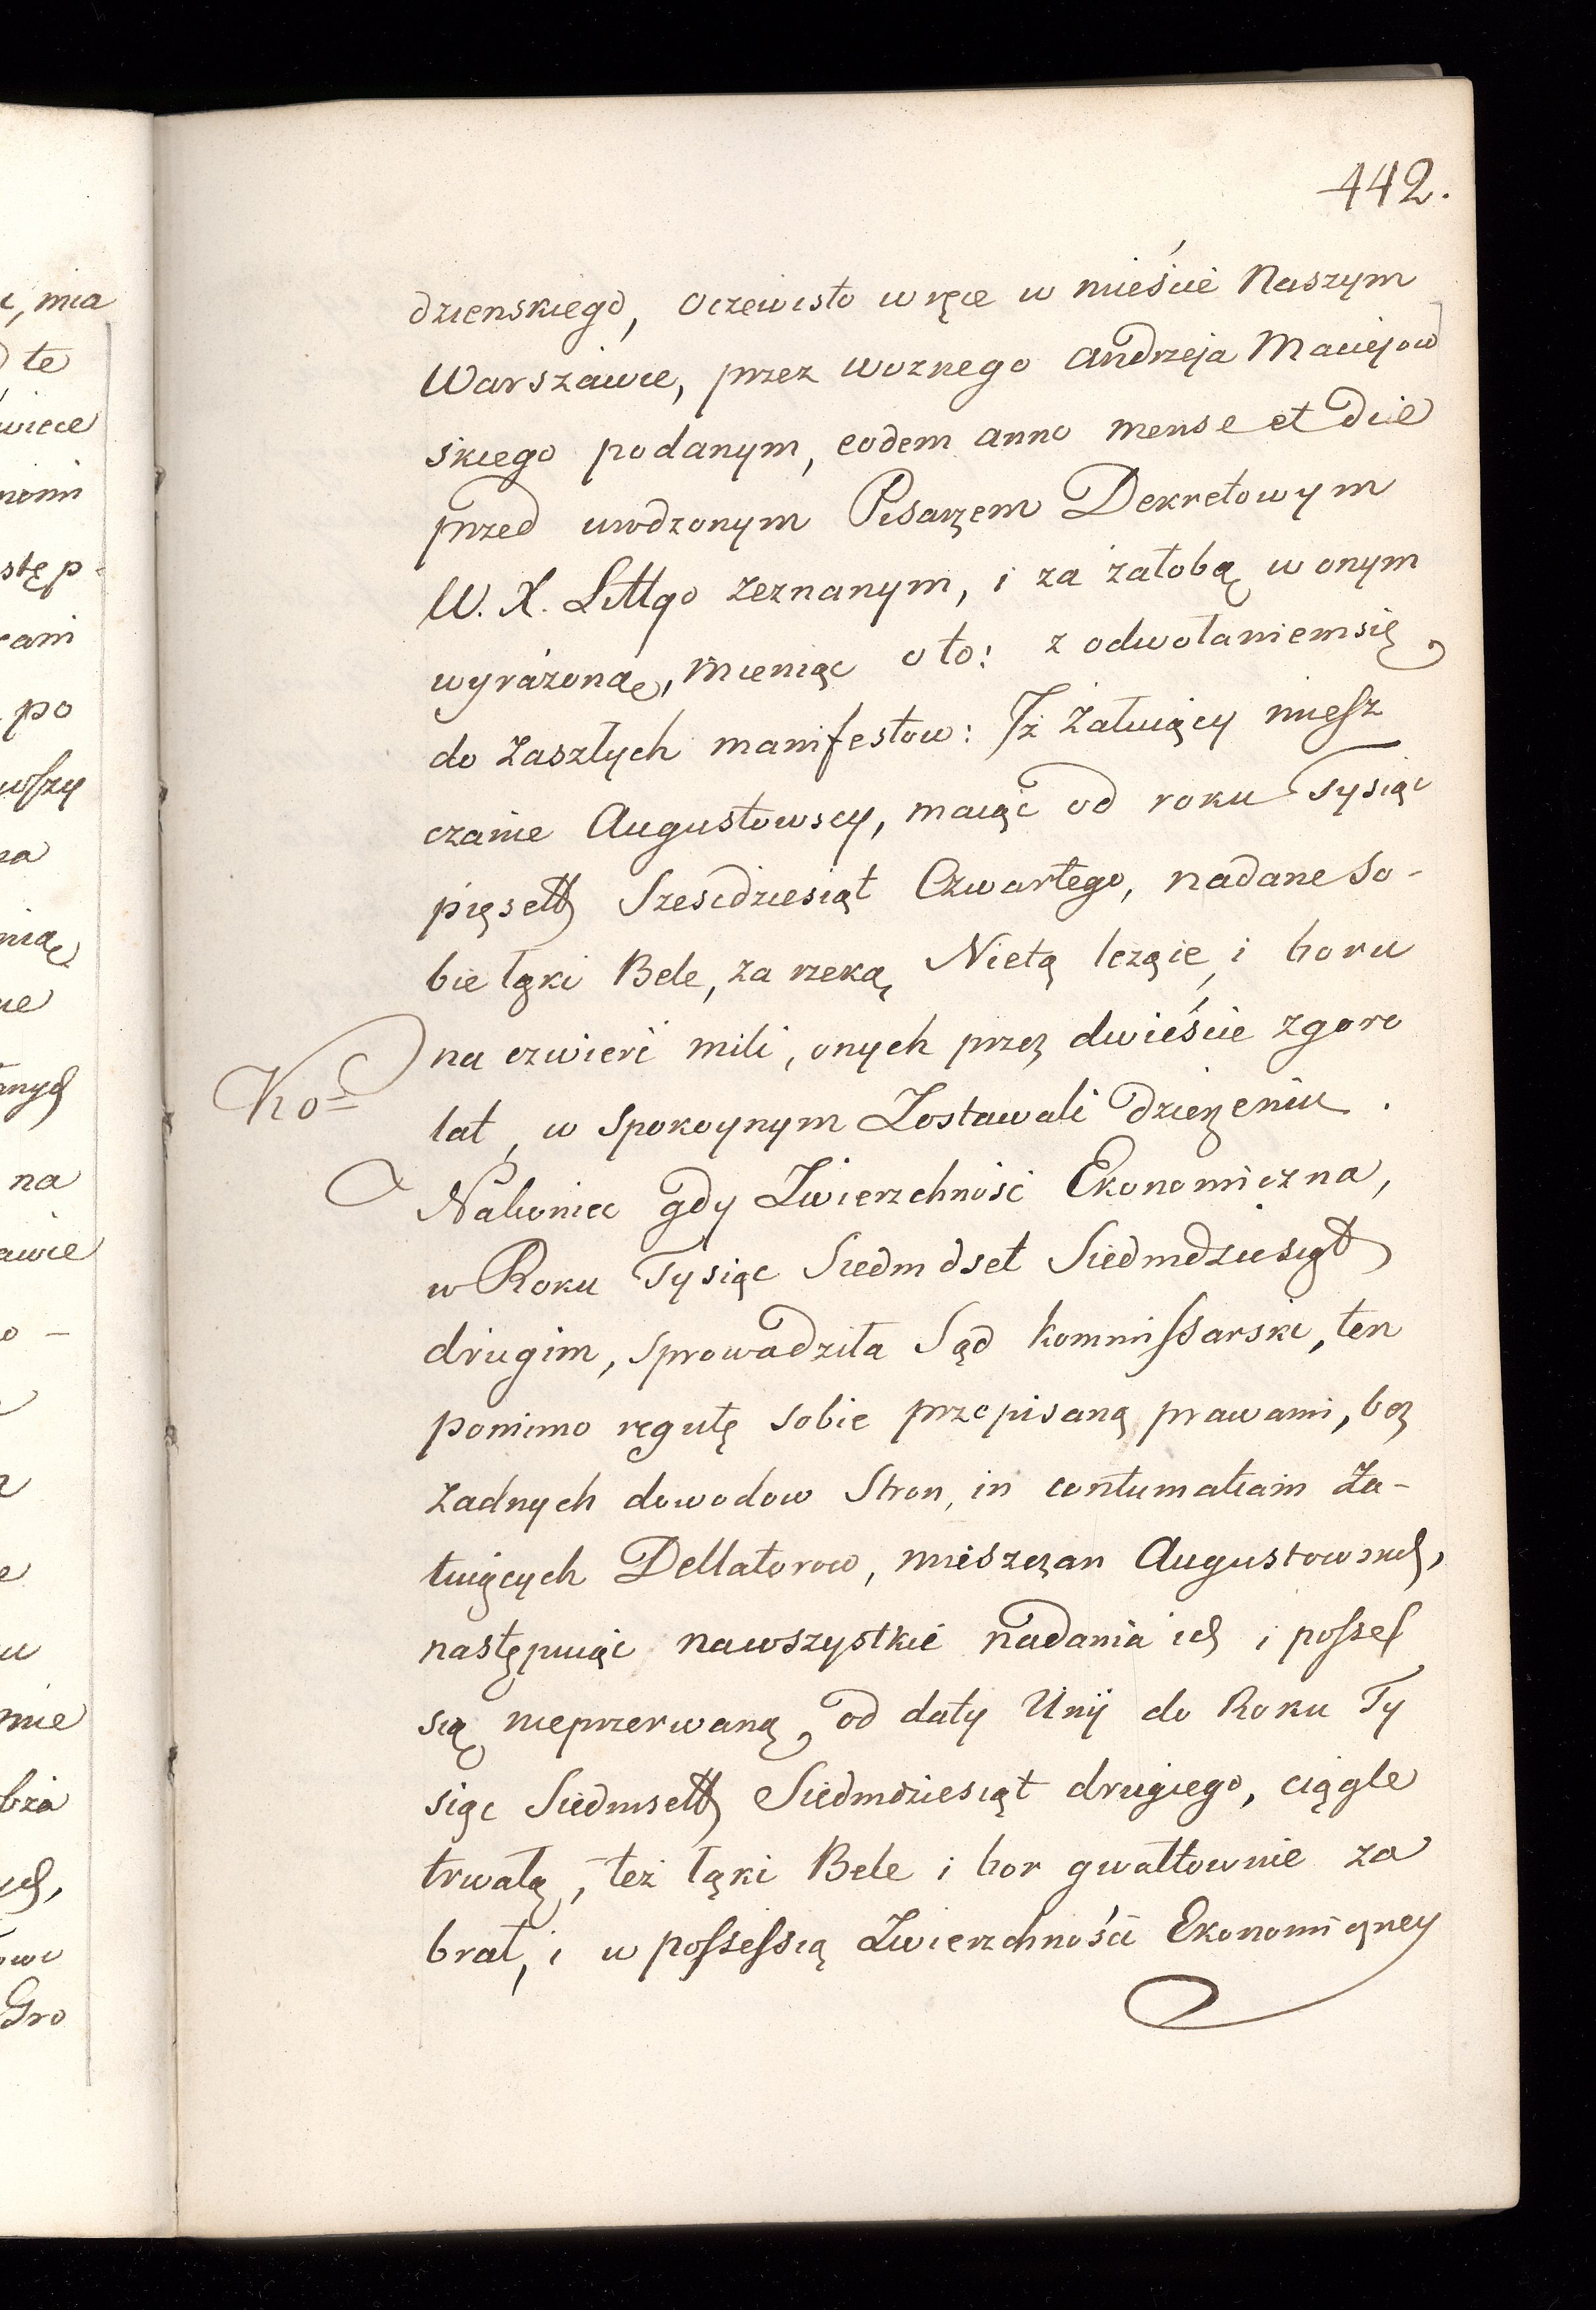 442.
dzienskiego, oczewisto w ręce w mieście Naszym
Warszawie, przez woznego andrzeja Maciejow
skiego podanym, eodem anno mense et die
przed urodzonym Pisarzem Dekretowym
W. X. Littgo zeznanym, i za załobą w onym
wyrażoną, mieniąc o to: z odwołaniem się
do zaszłych manifestow: Iż Żałuiący miesz
czanie Augustowscy, maiąc od roku Tysiąc
pięsett Szescdziesiąt Czwartego, nadane so-
bie łąki Bele, za rzeką Nietą lezące, i boru
na czwierć mili, onych przez dwieście zgoro
lat, w spokoynym Zostawali dzierzeniu.
Ko=
Nakoniec gdy Zwierzchność Ekonomiczna,
w Roku Tysiąc Siedmdset Siedmdziesiąt
drugim, sprowadziła Sąd kommissarski, ten
pomimo regułę sobie przepisaną prawami, bez
żadnych dowodow Stron, in contumatiam Ża-
łuiących Dellatorow, mieszczan Augustowskich,
następuiąc na wszystkie nadania ich i posses
sią nieprzerwaną, od daty Unij do Roku Ty
siąc Siedmsett Siedmdziesiąt drugiego, ciągle
trwałą, też łąki Bele i bor gwałtownie za
brał, i w possessią Zwierzchności Ekonomiczney
c, mia
te
wiece
nemi
stęp-
rani
po
wszy
na
nią
ue
nych
na
awie
o –
u
mie
bża
ych,
owi
Gro